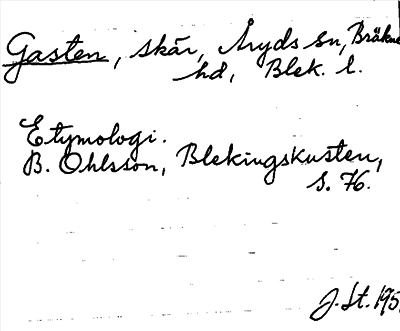 Gasten, skär, Åryds sn, Bräkne
hd, Blek. l.
Etymologi.
B. Ohlsson, Blekingskusten,
S. 76.
J. St. 195